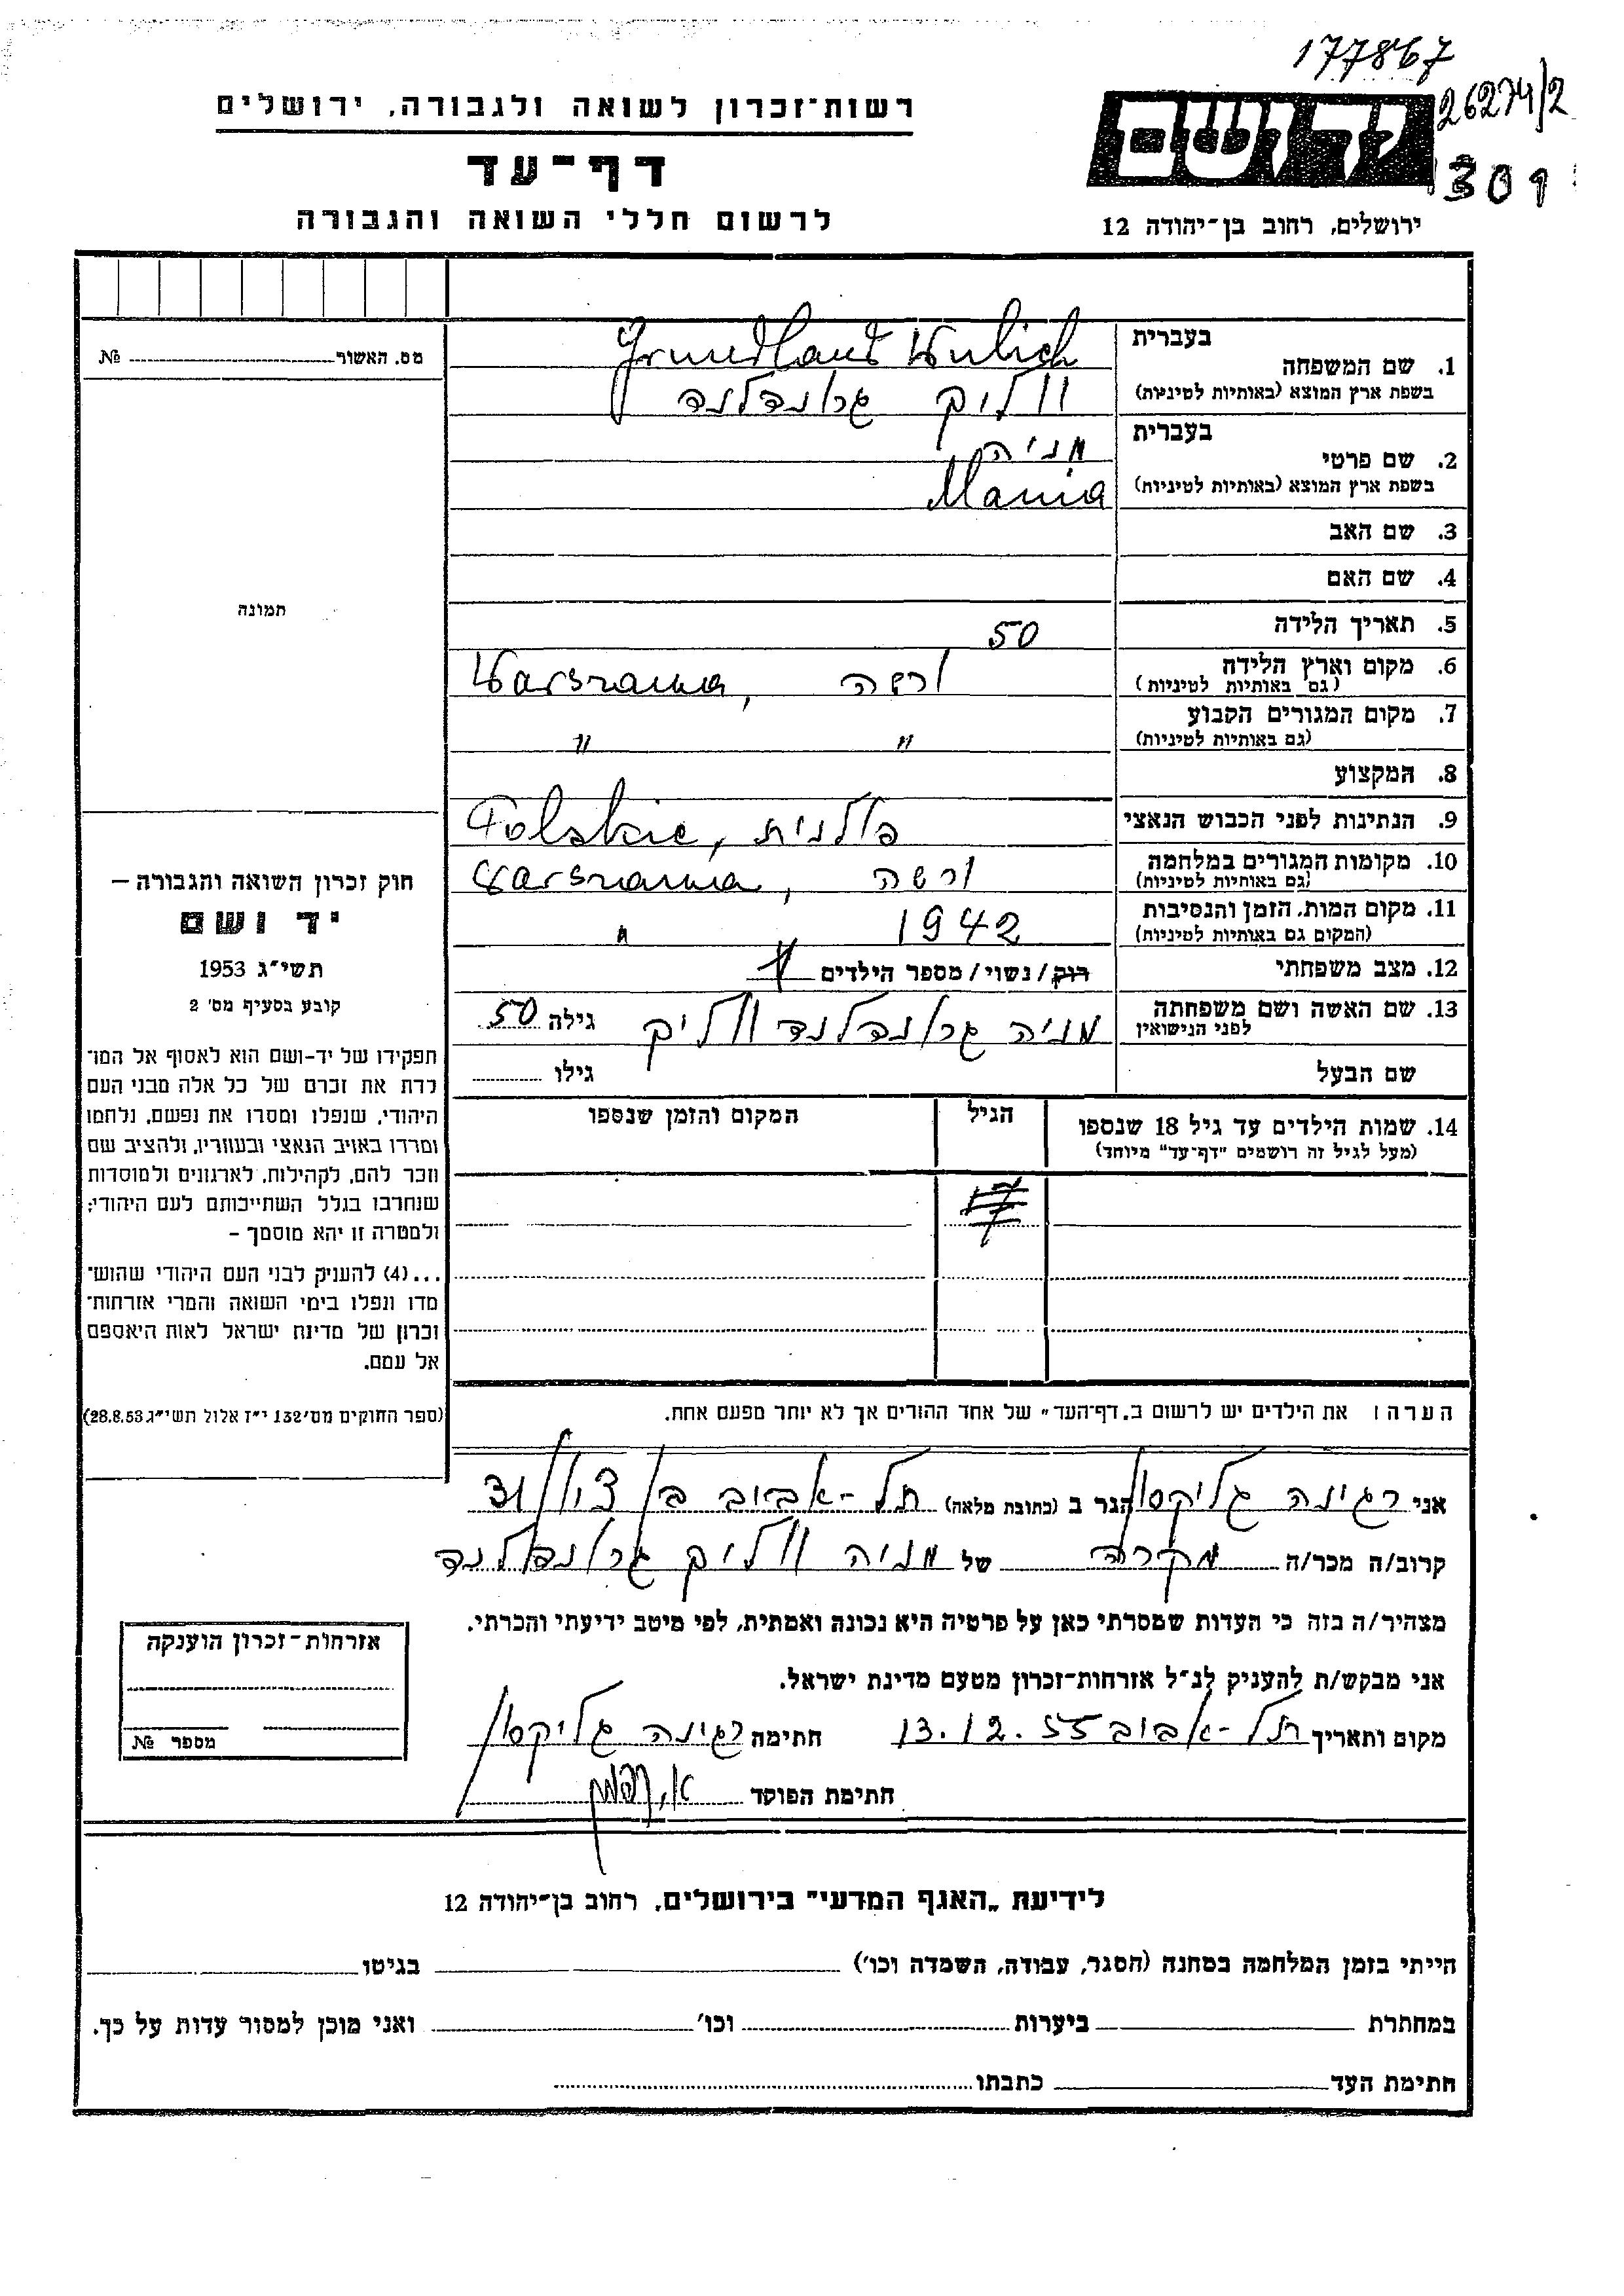 177867
26274/2
301
רשות־זכרון לשואה ולגבורה, ירושלים
דף־עד
לרשום חללי השואה והגבורה
ידושם
ירושלים, רחוב בן־יהודה 12
מס. האשור № 
בעברית
1. שם המשפחה Grundland Wulich
בשפת ארץ המוצא (באותיות לטיניות) ווליך גרונדלנד
בעברית
2. שם פרטי מניה
בשפת ארץ המוצא (באותיות לטיניות) Mania
3. שם האב
4. שם האם
תמונה
5. תאריך הלידה 50
6. מקום וארץ הלידה ורשה Warszawa,
(גם באותיות לטיניות)
7. מקום המגורים הקבוע " "
(גם באותיות לטיניות)
8. המקצוע
9. הנתינות לפני הכבוש הנאצי פולנית, Polskie
10. מקומות המגורים במלחמה ורשה, Warszawa
(גם באותיות לטיניות)
11. מקום המות, הזמן והנסיבות 1942 "
(המקום גם באותיות לטיניות)
12. מצב משפחתי רוק/נשוי/מספר הילדים
13. שם האשה ושם משפחתה מניה גרונדלנד ווליך גילה 50
לפני הנישואין
שם הבעל גילו
14. שמות הילדים עד גיל 18 שנספו הגיל המקום והזמן שנספו
(מעל לגיל זה רושמים "דף־עד" מיוחד)
חוק זכרון השואה והגבורה –
יד ושם
תשי״ג 1953
קובע בסעיף מס' 2
תפקידו של יד-ושם הוא לאסוף אל המו־
לדת את זכרם של כל אלה מבני העם
היהודי, שנפלו ומסרו את נפשם, נלחמו
ומרדו באויב הנאצי ובעוזריו, ולהציב שם
וזכר להם, לקהילות, לארגונים ולמוסדות
שנחרבו בגלל השתייכותם לעם היהודי;
ולמטרה זו יהא מוסמך –
...(4) להעניק לבני העם היהודי שהוש־
מדו ונפלו בימי השואה והמרי אזרחות־
זכרון של מדינת ישראל לאות היאספם
אל עמם.
(ספר החוקים מס' 132 י״ז אלול תשי״ג 28.8.53)
הערה: את הילדים יש לרשום ב„דף־העד" של אחד ההורים אך לא יותר מפעם אחת.
אני רגינה גליקסון הגר ב (כתובת מלאה) תל-אביב בן ציון 31
קרוב/ה מכר/ה מקרה של מניה ווליך גרונדלנד
מצהיר/ה בזה כי העדות שמסרתי כאן על פרטיה היא נכונה ואמתית, לפי מיטב ידיעתי והכרתי.
אני מבקש/ת להעניק לנ״ל אזרחות־זכרון מטעם מדינת ישראל.
מקום ותאריך תל-אביב 13.12.55 חתימה רגינה גליקסון
חתימת הפוקד
אזרחות־זכרון הוענקה
מספר №
לידיעת „האגף המדעי" בירושלים, רחוב בן־יהודה 12
הייתי בזמן המלחמה במחנה (הסגר, עבודה, השמדה וכו') בגיטו
במחתרת ביערות וכו' ואני מוכן למסור עדות על כך.
חתימת העד כתבתו